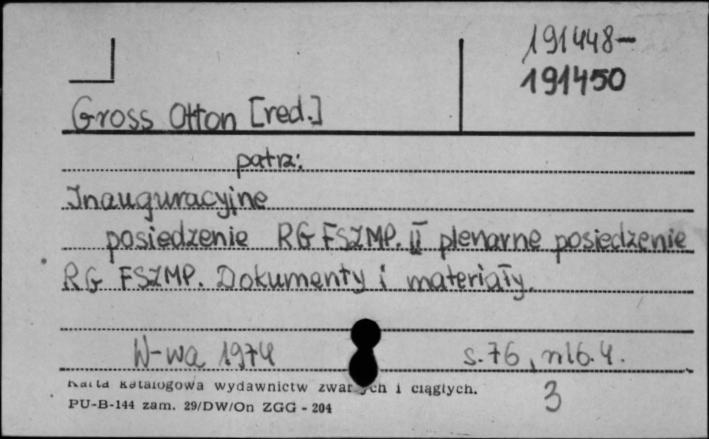 191448-
191450
Gross Otton [red.]
patrz:
Inauguracyjne
posiedzenie RG FSZMP. II plenarne posiedzenie
RG FSZMP. Dokumenty i materiały.
W-wa 1974 s. 76, nlb. 4.
Karta katalogowa wydawnictw zwartych i ciągłych.
3
PU-B-144 zam. 29/DW/On ZGG - 204